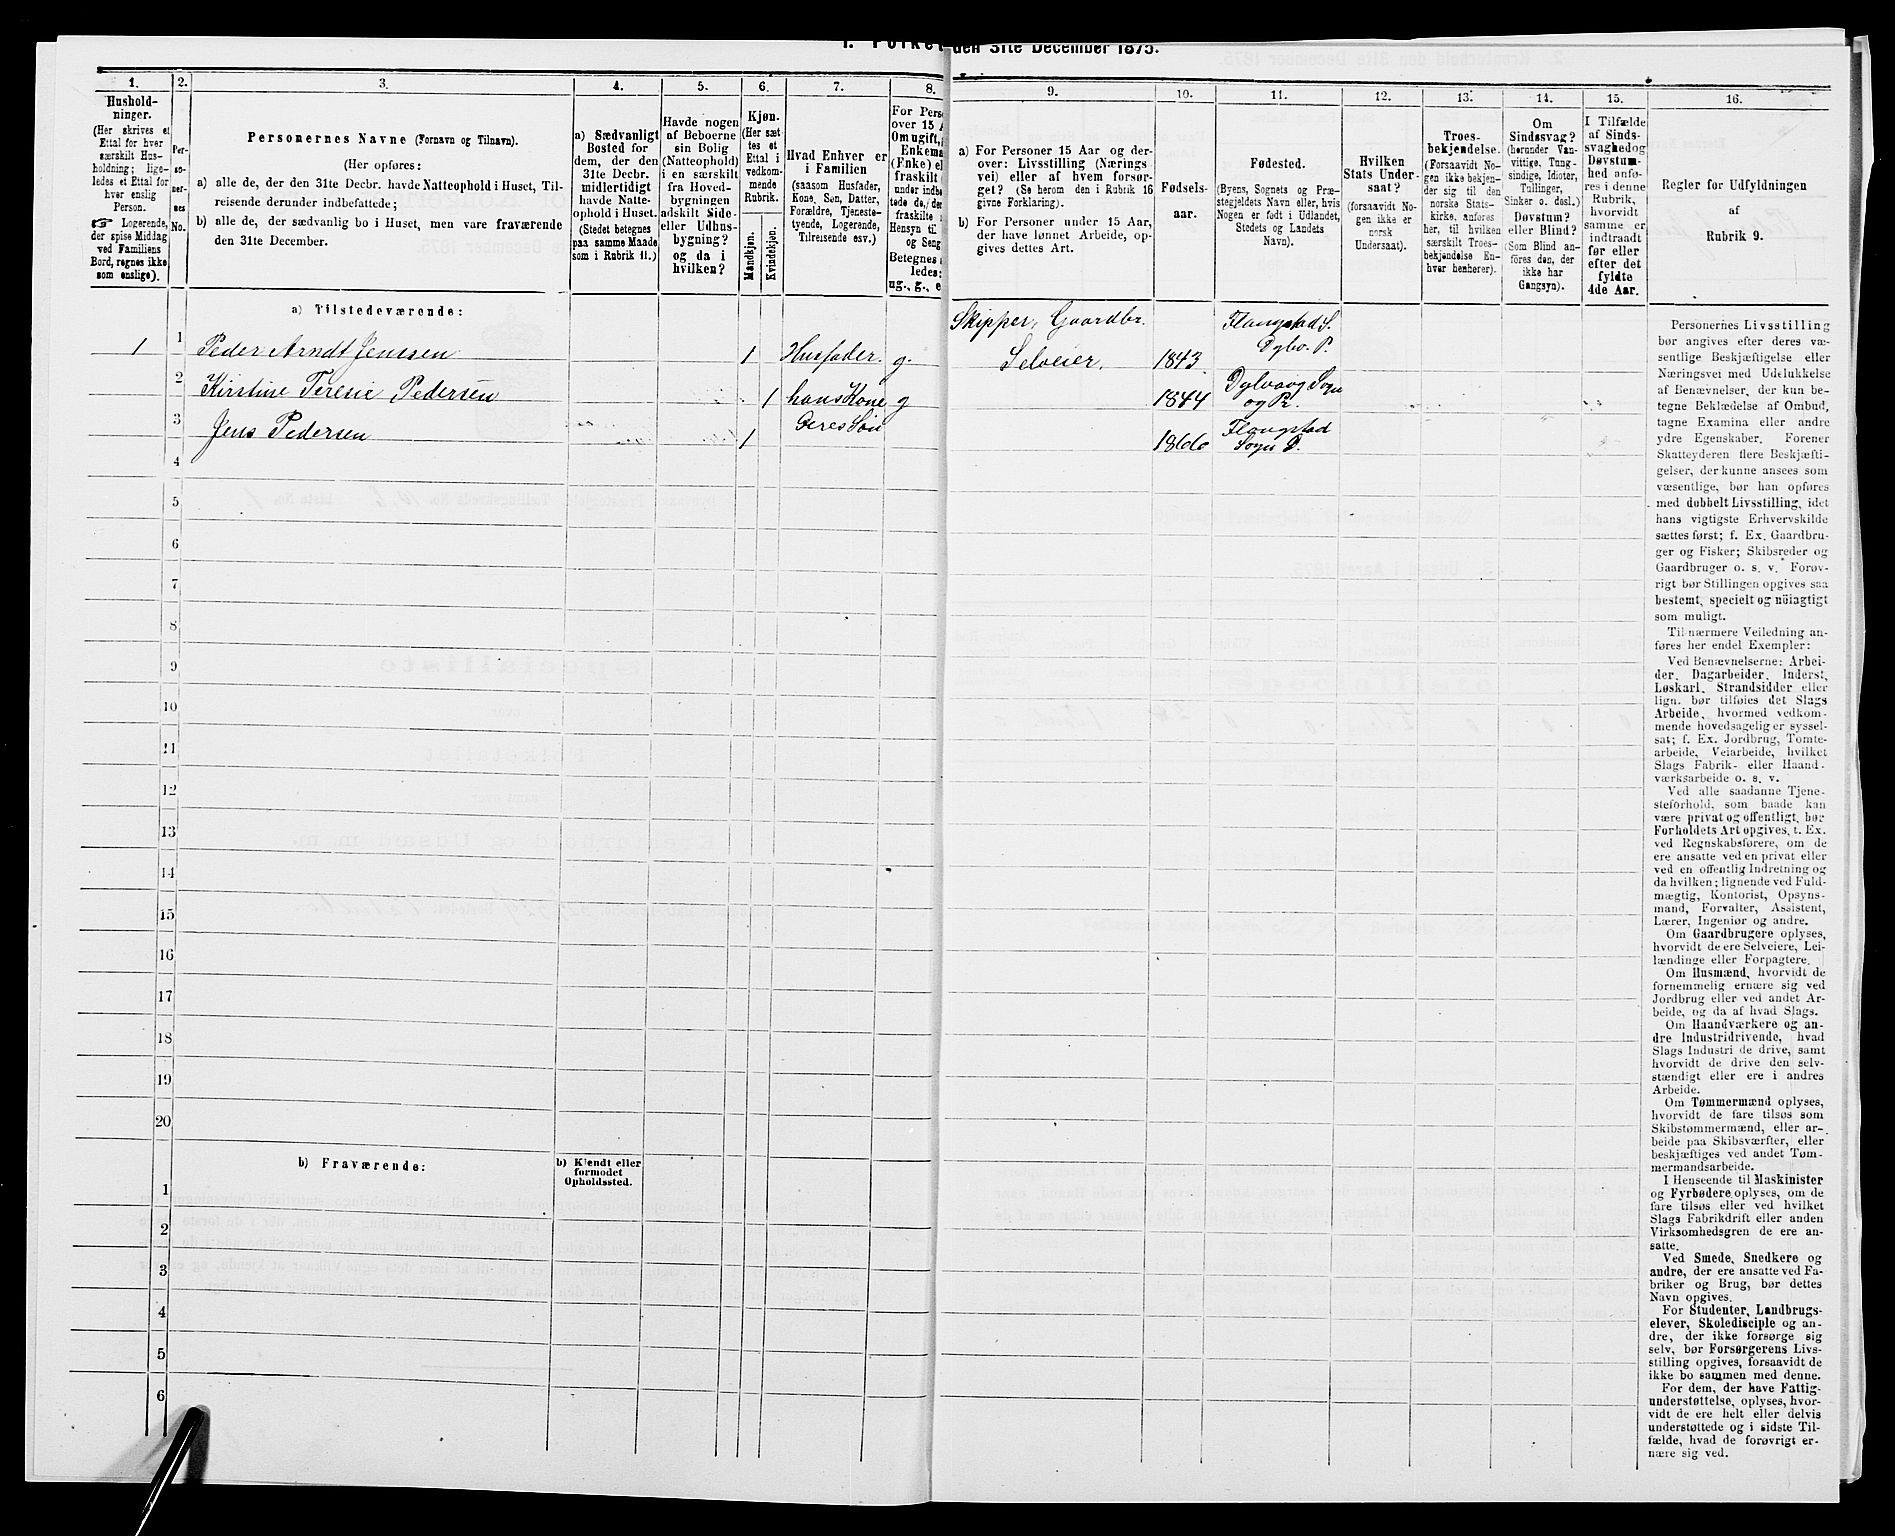 den 31te December 1875.
1.
Hushold-
ninger.
(Her skrives et
Ettal for hver
særskilt Hus-
holdning; lige-
ledes et Ettal for
hver enslig
Person.
☞ Logerende,
der spise Middag
ved Familiens
Bord, regnes ikke
som enslige).
2.
Per-
so-
ner-
nes
No.
3.
Personernes Navne (Fornavn og Tilnavn).
(Her opføres:
a) alle de, der den 31te Decbr. havde Natteophold i Huset, Til-
reisende derunder indbefattede;
b) alle de, der sædvanlig bo i Huset, men vare fraværende
den 31te December.
4.
a) Sædvanligt
Bosted for
dem, der den
31te Decbr.
midlertidigt
havde Natte-
ophold i Huset.
(Stedet betegnes
paa samme Maade
som i Rubrik 11.)
5.
Havde nogen
af Beboerne
sin Bolig
(Natteophold)
i en særskilt
fra Hoved-
bygningen
adskilt Side-
eller Udhus-
bygning?
og da i
hvilken?
6.
Kjøn.
(Her sæt-
tes et
Ettal i
vedkom-
mende
Rubrik.
Mandkjøn.
Kvindekjøn.
7.
Hvad Enhver er
i Familien
(saasom Husfader,
Kone, Søn, Datter,
Forældre, Tjeneste-
tyende, Logerende,
Tilreisende osv.)
8.
For Pers
over 15 A
Om ugift,
Enkema
(Fnke) el
fraskilt
under indbe
tede de,
fraskilte
Hensyn til
og Seng
Betegnes
ledes:
ug., g., e
9.
a) For Personer 15 Aar og der-
over: Livsstilling (Nærings-
vei) eller af hvem forsør-
get? (Se herom den i Rubrik 16
givne Forklaring).
b) For Personer under 15 Aar,
der have lønnet Arbeide, op-
gives dettes Art.
10.
Fødsels-
aar.
11.
Fødested.
(Byens, Sognets og Præ-
stegjeldets Navn eller, hvis
Nogen er født i Udlandet,
Stedets og Landets
Navn).
12.
Hvilken
Stats Under-
saat?
(forsaavidt No-
gen ikke er
norsk
Undersaat).
13.
Troes-
bekjendelse.
(Forsaavidt No-
gen ikke bekjen-
der sig til den
norske Stats-
kirke, anføres
her, til hvilken
særskilt Troes-
bekjendelse En-
hver henhører).
14.
Om
Sindssvag?
(herunder Van-
vittige, Tung-
sindige, Idioter,
Tullinger,
Sinker o. desl.)
Døvstum?
eller Blind?
(Som Blind an-
føres den, der
ikke har
Gangsyn).
15.
I Tilfælde
af Sinds-
svaghed og
Døvstum-
hed anfø-
res i denne
Rubrik,
hvorvidt
samme er
indtraadt
før eller
efter det
fyldte
4de Aar.
16.
Regler for Udfyldningen
af
Rubrik 9.
a) Tilstedeværende:
Skipper, Gaardbr. Flangstad S.
1 1 Peder Arndt Jenssen 1 Husfader. g. Selveier. 1843 Dybv. P.
2 Kirstine Teresie Pedersen 1 hans Kone g 1844 Dybvaag Sogn
og Pr.
3 Jens Pedersen 1 Deres Søn 1866 Flangstad
Sogn P.
4
5
6
7
8
9
10
11
12
13
14
15
16
17
18
19
20
b) Fraværende:
b) Kjendt eller
formodet
Opholdssted.
1
2
3
4
5
6
Personernes Livsstilling
bør angives efter deres væ-
sentlige Beskjæftigelse eller
Næringsvei med Udelukkelse
af Benævnelser, der kun be-
tegne Beklædelse af Ombud,
tagne Examina eller andre
ydre Egenskaber. Forener
Skatteyderen flere Beskjæfti-
gelser, der kunne ansees som
væsentlige, bør han opføres
med dobbelt Livsstilling, idet
hans vigtigste Erhvervskilde
sættes først; f. Ex. Gaardbru-
ger og Fisker; Skibsreder og
Gaardbruger o. s. v. Forøv-
rigt bør Stillingen opgives saa
bestemt, specielt og nöiagtigt
som muligt.
Til nærmere Veiledning an-
føres her endel Exempler:
Ved Benævnelserne: Arbei-
der, Dagarbeider, Inderst,
Løskarl, Strandsidder eller
lign. bør tilføies det Slags
Arbeide, hvormed vedkom-
mende hovedsagelig er syssel-
sat; f. Ex. Jordbrug, Tomte-
arbeide, Veiarbeide, hvilket
Slags Fabrik- eller Haand-
værksarbeide o. s. v.
Ved alle saadanne Tjene-
steforhold, som baade kan
være privat og offentligt, bør
Forholdets Art opgives, t. Ex.
ved Regnskabsførere, om de
ere ansatte ved en privat eller
ved en offentlig Indretning og
da hvilken; lignende ved Fuld-
mægtig, Kontorist, Opsyns-
mand, Forvalter, Assistent,
Lærer, Ingeniør og andre.
Om Gaardbrugere oplyses,
hvorvidt de ere Selveiere, Lei-
lændinge eller Forpagtere.
Om Husmænd, hvorvidt de
fornemmelig ernære sig ved
Jordbrug eller ved andet Ar-
beide, og da af hvad Slags.
Om Haandværkere og an-
dre Industridrivende, hvad
Slags Industri de drive, samt
hvorvidt de drive den selv-
stændigt eller ere i andres
Arbeide.
Om Tømmermænd oplyses,
hvorvidt de fare tilsøs som
Skibstømmermænd, eller ar-
beide paa Skibsværfter, eller
beskjæftiges ved andet Tøm-
mermandsarbeide.
I Henseende til Maskinister
og Fyrbødere oplyses, om de
fare tilsøs eller ved hvilket
Slags Fabrikdrift eller anden
Virksomhedsgren de ere an-
satte.
Ved Smede, Snedkere og
andre, der ere ansatte ved Fa-
briker og Brug, bør dettes
Navn opgives.
For Studenter, Landbrugs-
elever, Skoledisciple og an-
dre, der ikke forsørge sig
selv, bør Forsørgerens Livs-
stilling opgives, forsaavidt de
ikke bo sammen med denne.
For dem, der have Fattig-
understøttelse, oplyses, hvor-
vidt de ere helt eller delvis
understøttede og i sidste Til-
fælde, hvad de forøvrigt er-
nære sig ved.